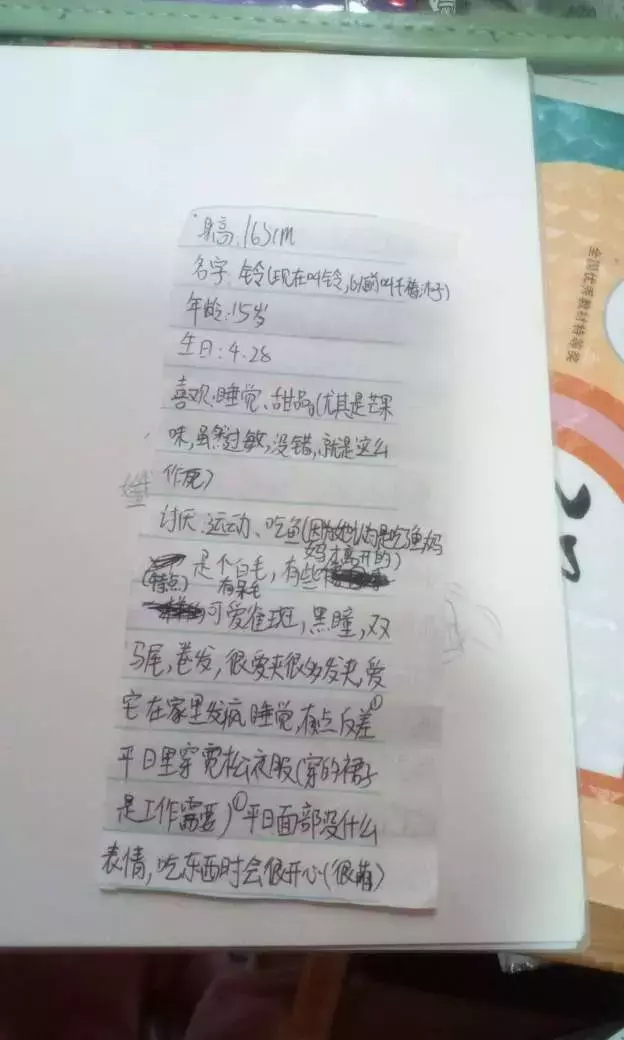 身高:163cm
名字:铃(现在叫铃,以前叫千禧 子)
年龄:15岁
生日:4.28
喜欢:睡觉、甜品(尤其是芒果
味,虽然过敏,没错,就是这么
作死)
讨厌:运动、吃鱼(因为她认为是吃鱼妈
妈才离开的)
(特点)是个白毛,有呆毛,有些
可爱雀斑,黑瞳,双
马尾,卷发,很爱夹很多发夹,爱
宅在家里发疯,睡觉,有点反差①
平日里穿宽松衣服(穿的裙子
是工作需要)①平日面部没什么
表情,吃东西时会很开心(很萌)
全国优秀教材特等奖